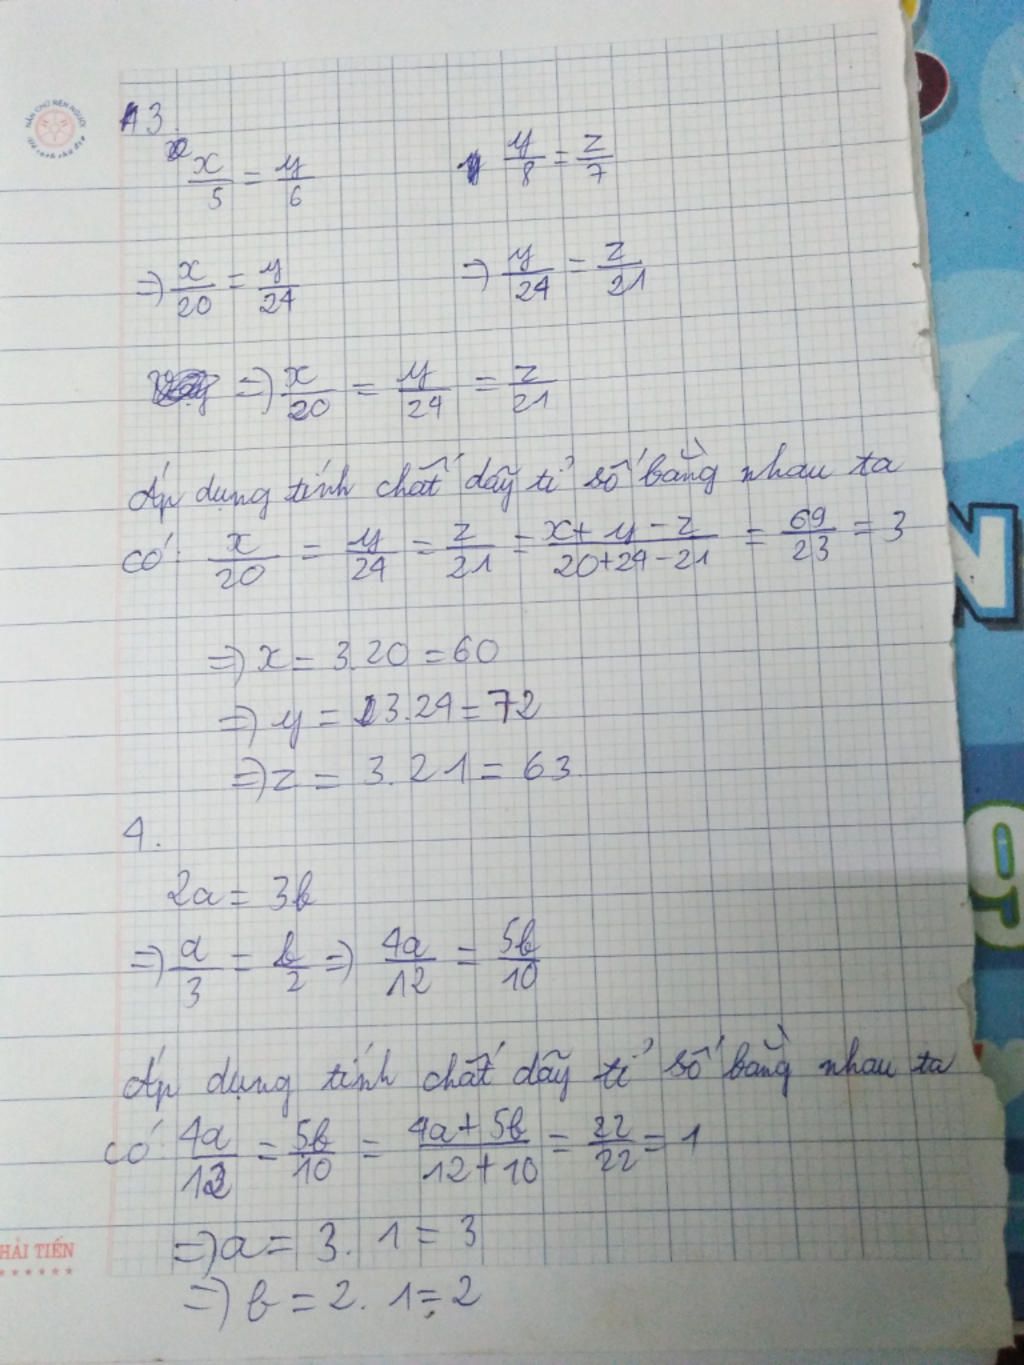 3.
x/5 = y/6 y/8 = z/7
=> x/20 = y/24 => y/24 = z/21
=> x/20 = y/24 = z/21
Áp dụng tính chất dãy tỉ số bằng nhau ta
có: x/20 = y/24 = z/21 = x+y-z/20+24-21 = 69/23 = 3
=> x = 3.20 = 60
=> y = 3.24 = 72
=> z = 3.21 = 63
4.
2a = 3b
=> a/3 = b/2 => 4a/12 = 5b/10
Áp dụng tính chất dãy tỉ số bằng nhau ta
có 4a/12 = 5b/10 = 4a+5b/12+10 = 22/22 = 1
HẢI TIẾN
=> a = 3.1 = 3
=> b = 2.1 = 2